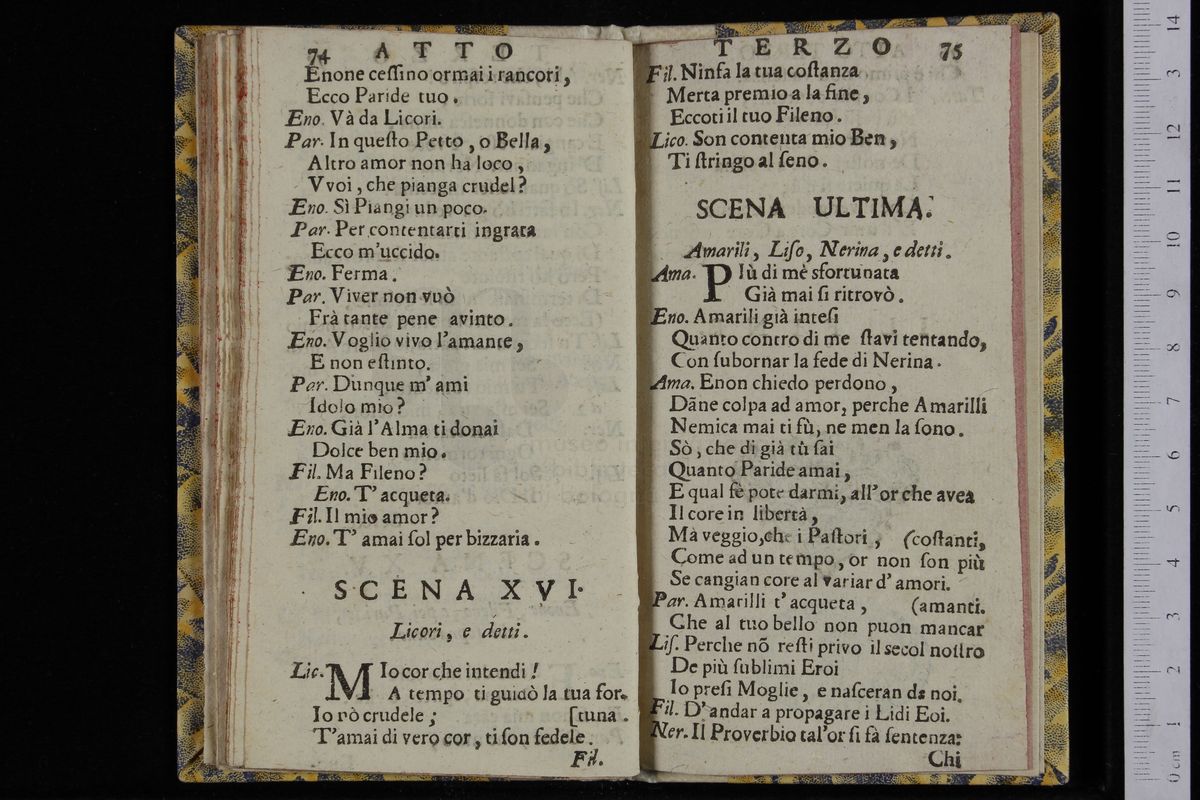 74 ATTO
Enone ceſſino ormai i rancori,
Ecco Paride tuo.
Eno. Và da Licori.
Par. In queſto Petto, o Bella,
Altro amor non ha loco,
Vvoi, che pianga crudel?
Eno. Sì Piangi un poco.
Par. Per contentarti ingrata
Ecco m'uccido.
Eno. Ferma.
Par. Viver non vuò
Frà tante pene avinto.
Eno. Voglio vivo l'amante,
E non eſtinto.
Par. Dunque m' ami
Idolo mio?
Eno. Già l'Alma ti donai
Dolce ben mio.
Fil. Ma Fileno?
Eno. T' acqueta.
Fil. Il mio amor?
Eno. T' amai ſol per bizzaria.
SCENA XVI.
Licori, e detti.
Lic. MIo cor che intendi!
A tempo ti guidò la tua for-
Io rò crudele; [tuna.
T'amai di vero cor, ti ſon fedele.
Fil.
TERZO 75
Fil. Ninfa la tua coſtanza
Merta premio a la fine,
Eccoti il tuo Fileno.
Lico. Son contenta mio Ben,
Ti ſtringo al ſeno.
SCENA ULTIMA.
Amarili, Liſo, Nerina, e detti.
Ama. PIù di mè sfortunata
Già mai ſi ritrovò.
Eno. Amarili già inteſi
Quanto contro di me ſtavi tentando,
Con ſubornar la fede di Nerina.
Ama. Enon chiedo perdono,
Dãne colpa ad amor, perche Amarilli
Nemica mai ti fù, ne men la ſono.
Sò, che di già tù ſai
Quanto Paride amai,
E qual fè pote darmi, all'or che avea
Il core in libertà,
Mà veggio, che i Paſtori, (coſtanti,
Come ad un tempo, or non ſon più
Se cangian core al variar d' amori.
Par. Amarilli t' acqueta, (amanti.
Che al tuo bello non puon mancar
Liſ. Perche nõ reſti privo il secol noſtro
De più ſublimi Eroi
Io preſi Moglie, e naſceran da noi.
Fil. D' andar a propagare i Lidi Eoi.
Ner. Il Proverbio tal'or ſi fà ſentenza:
Chi